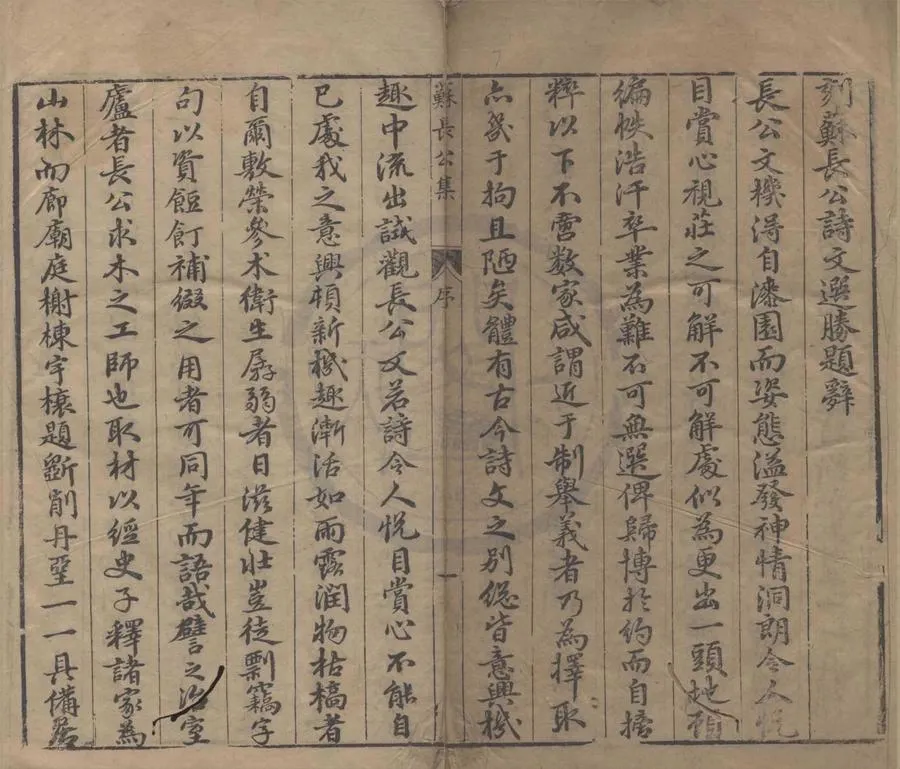 刻蘇長公詩文選勝題辭
長公文機得自漆園而姿態溢發神情洞朗令人悅
目賞心視莊之可解不可解處似為更出一頭地顧
編帙浩汗卒業為難不可無選俾歸博於約而自擔
粹以下不啻数家咸謂近于制舉義者乃為擇取
亦幾于拘且陋矣體有古今詩文之別總皆意興機
蘇長公集 序 一
趣中流出試觀長公文若詩令人悅目賞心不能自
已處我之意興頓新機趣漸活如雨露潤物枯槁者
自爾敷榮參术衛生孱弱者日滋健壯豈徒剽竊字
句以資飣餖補綴之用者可同年而語哉譬之治室
廬者長公求木之工師也取材以經史子釋諸家為
山林而廊廟庭榭棟宇榱題斲削丹堊一一具備居